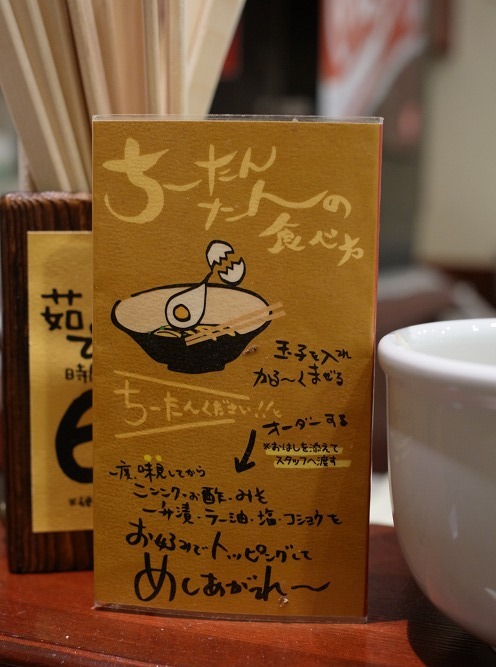 ちーたん
たんの
食べ方
玉子を入れ
かる〜くまぜる
ちーたんください!!と
オーダーする
※おはしを添えて
スタッフへ渡す
一度、味見してから
ニンニク・お酢・みそ
一升漬・ラー油・塩・コショウを
お好みでトッピングして
めしあがれ〜
茹で
時間
6